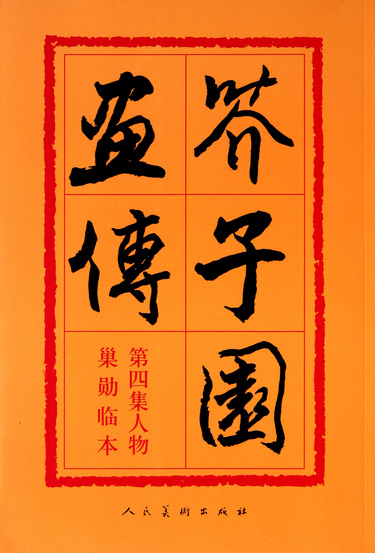 芥子園
畫傳
第四集人物
巢勋临本
人民美術出版社